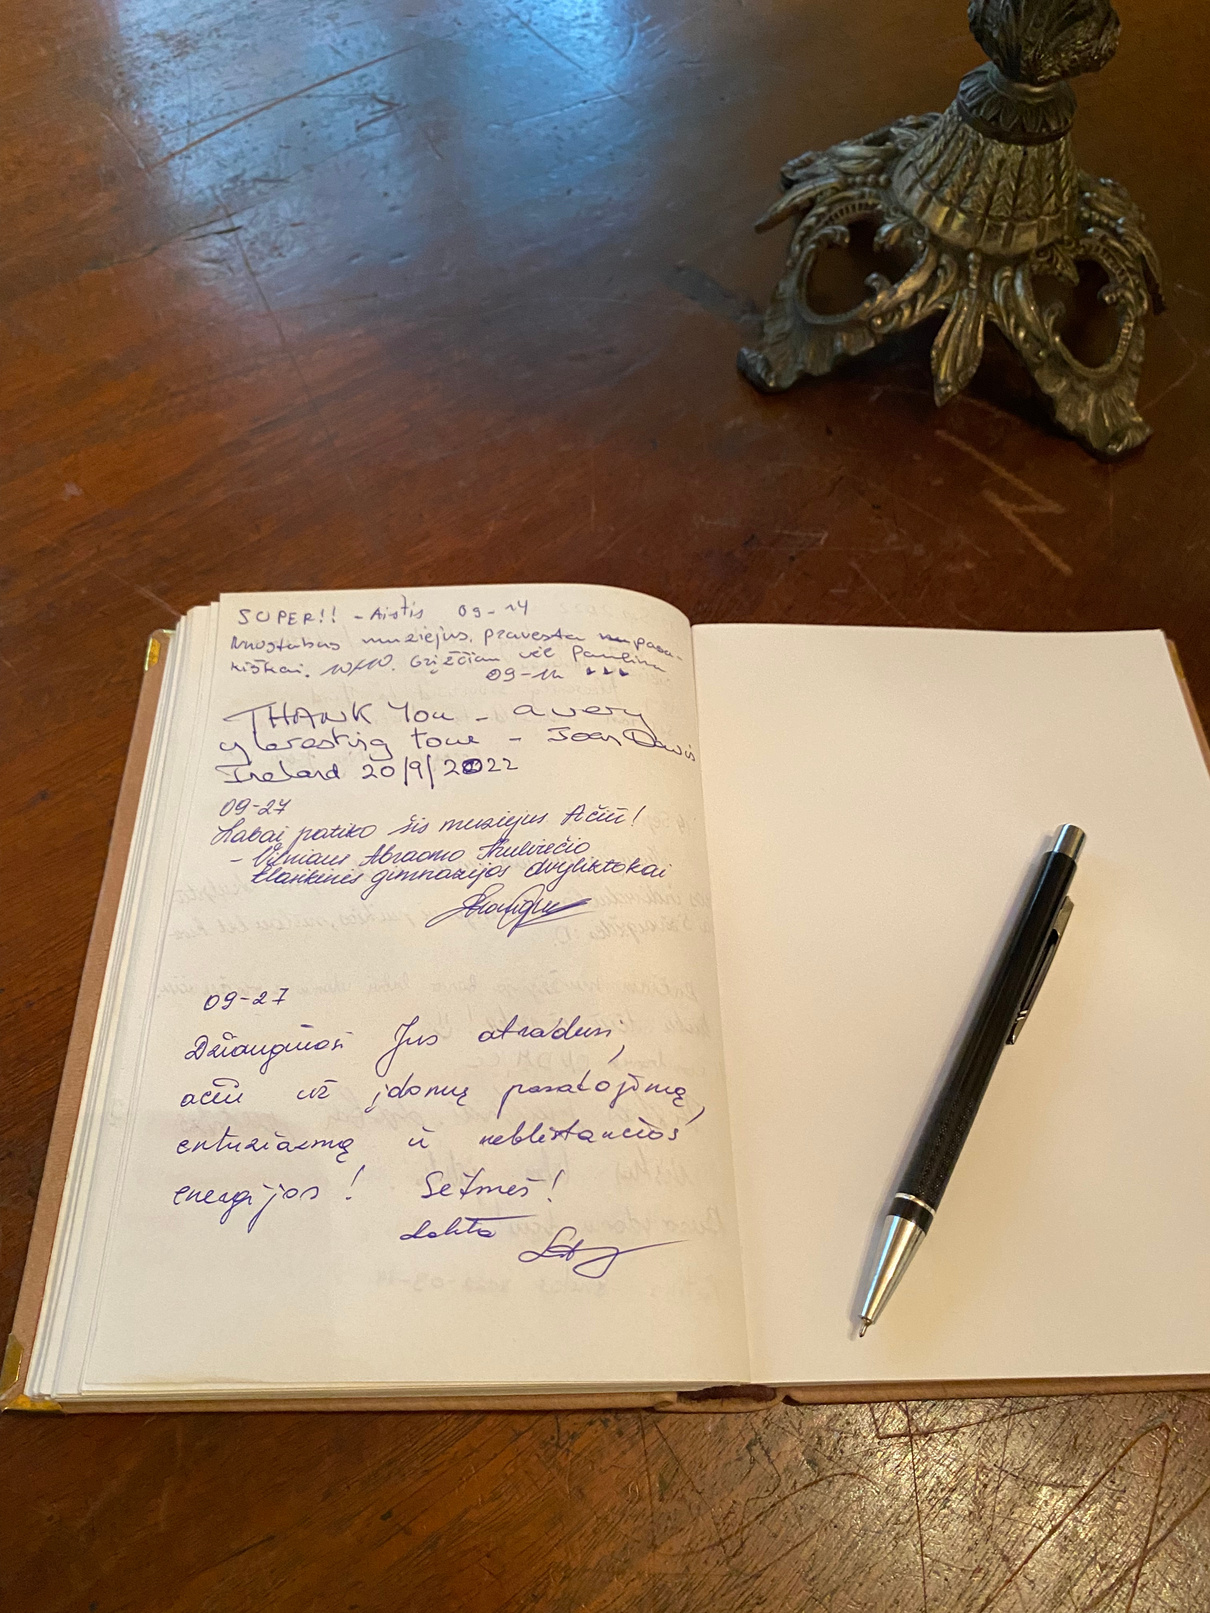 SUPER!! - Aistis 09-14
Nuostabus muziejus, pravesta pasa-
kiškai. 10/10. Grįžčiau vėl Paulina
09-14
THANK You - a very
ynteresting tour - Joan Davis
Ireland 20/9/2022
09-27
Labai patiko šis muziejus Ačiū!
- Vilniaus Abraomo Kulviečio
klasikinės gimnazijos dvyliktokai
09-27
Džiaugiuosi Jus atradusi,
ačiū už įdomų pasakojimą,
entuziazmą ir neblėstančios
energijos! Sėkmės!